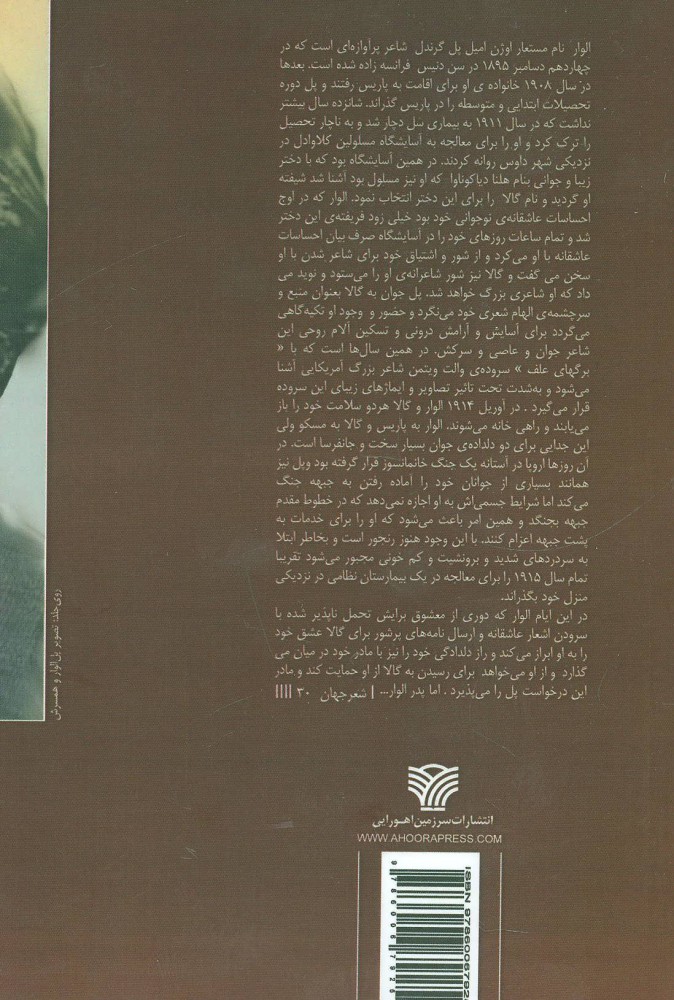 الوار نام مستعار اوژن امیل پل گرندل شاعر پرآوازه‌ای است که در
چهاردهم دسامبر ۱۸۹۵ در سن دنیس فرانسه زاده شده است. بعدها
در سال ۱۹۰۸ خانواده ی او برای اقامت به پاریس رفتند و پل دوره
تحصیلات ابتدایی و متوسطه را در پاریس گذراند. شانزده سال بیشتر
نداشت که در سال ۱۹۱۱ به بیماری سل دچار شد و به ناچار تحصیل
را ترک کرد و او را برای معالجه به آسایشگاه مسلولین کلاوادل در
نزدیکی شهر داوس روانه کردند. در همین آسایشگاه بود که با دختر
زیبا و جوانی بنام هلنا دیاکوناوا که او نیز مسلول بود آشنا شد شیفته
او گردید و نام گالا را برای این دختر انتخاب نمود. الوار که در اوج
احساسات عاشقانه‌ی نوجوانی خود بود خیلی زود فریفته‌ی این دختر
شد و تمام ساعات روزهای خود را در آسایشگاه صرف بیان احساسات
عاشقانه با او می‌کرد و از شور و اشتیاق خود برای شاعر شدن با او
سخن می گفت و گالا نیز شور شاعرانه‌ی او را می‌ستود و نوید می
داد که او شاعری بزرگ خواهد شد. پل جوان به گالا بعنوان منبع و
سرچشمه‌ی الهام شعری خود می‌نگرد و حضور و وجود او تکیه‌گاهی
می‌گردد برای آسایش و آرامش درونی و تسکین آلام روحی این
شاعر جوان و عاصی و سرکش. در همین سال‌ها است که با «
برگهای علف » سروده‌ی والت ویتمن شاعر بزرگ آمریکایی آشنا
می‌شود و به‌شدت تحت تاثیر تصاویر و ایماژهای زیبای این سروده
قرار می‌گیرد . در آوریل ۱۹۱۴ الوار و گالا هردو سلامت خود را باز
می‌یابند و راهی خانه می‌شوند. الوار به پاریس و گالا به مسکو ولی
این جدایی برای دو دلداده‌ی جوان بسیار سخت و جانفرسا است. در
آن روزها اروپا در آستانه یک جنگ خانمانسوز قرار گرفته بود وپل نیز
همانند بسیاری از جوانان خود را آماده رفتن به جبهه جنگ
می‌کند اما شرایط جسمی‌اش به او اجازه نمی‌دهد که در خطوط مقدم
جبهه بجنگد و همین امر باعث می‌شود که او را برای خدمات به
پشت جبهه اعزام کنند. با این وجود هنوز رنجور است و بخاطر ابتلا
به سردردهای شدید و برونشیت و کم خونی مجبور می‌شود تقریبا
تمام سال ۱۹۱۵ را برای معالجه در یک بیمارستان نظامی در نزدیکی
منزل خود بگذراند.
در این ایام الوار که دوری از معشوق برایش تحمل ناپذیر شده با
سرودن اشعار عاشقانه و ارسال نامه‌های پرشور برای گالا عشق خود
را به او ابراز می‌کند و راز دلدادگی خود را نیز با مادر خود در میان می
گذارد و از او می‌خواهد برای رسیدن به گالا از او حمایت کند و مادر
این درخواست پل را می‌پذیرد . اما پدر الوار... | شعرجهان ۳۰ ||||
روی جلد: تصویر پل الوار و همسرش
انتشارات سرزمین اهورایی
WWW.AHOORAPRESS.COM
ISBN 978600679